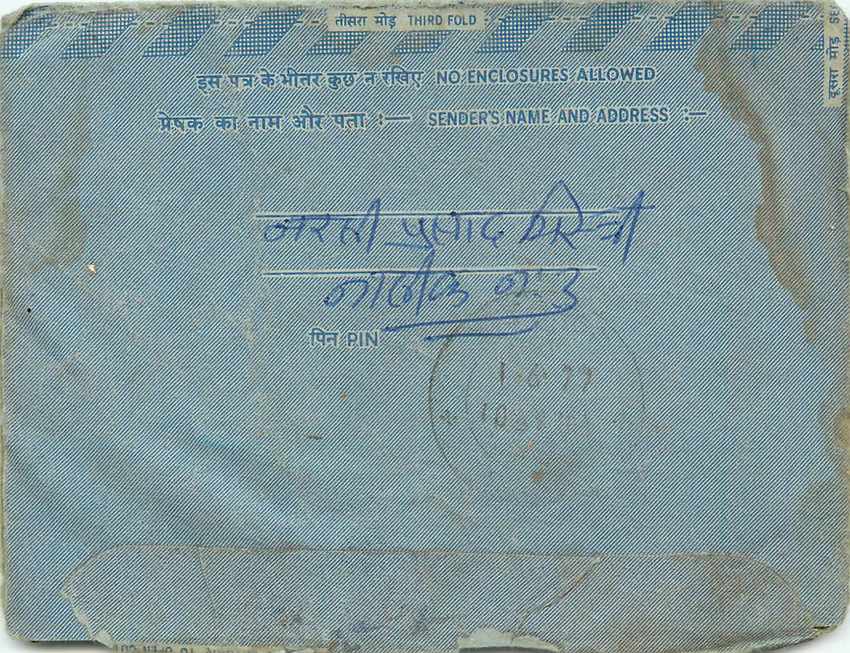 तीसरा मोड़ THIRD FOLD
दूसरा मोड़
इस पत्र के भीतर कुछ न रखिए NO ENCLOSURES ALLOWED
प्रेषक का नाम और पता :— SENDER'S NAME AND ADDRESS :—
प्रसाद मिस्त्री
नं. 3
पिन PIN
1·6·77